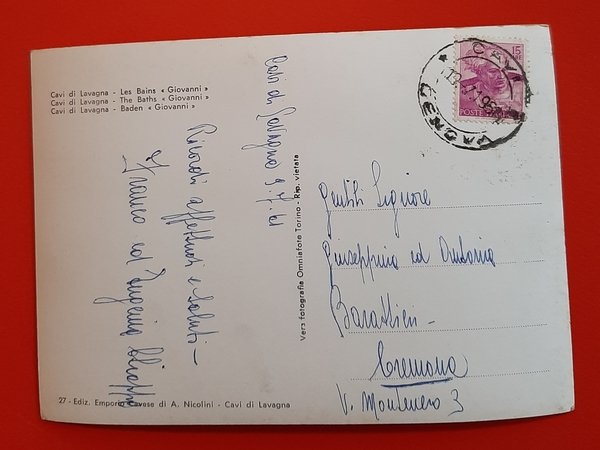 Cavi di Lavagna - Les Bains « Giovanni »
Cavi di Lavagna - The Baths « Giovanni »
Cavi di Lavagna - Baden « Giovanni »
Cavi di Lavagna 9.7.61
Ricordi affettuosi e saluti -
Franco ed Eugenia
Vera fotografia Omniafoto Torino - Rip. vietata
15
POSTE
CAVI
GENOVA
Gentili Signore
Giuseppina ed Antonia
Barattieri -
Cremona
V. Montenero 3
27 - Ediz. Emporio Cavese di A. Nicolini - Cavi di Lavagna